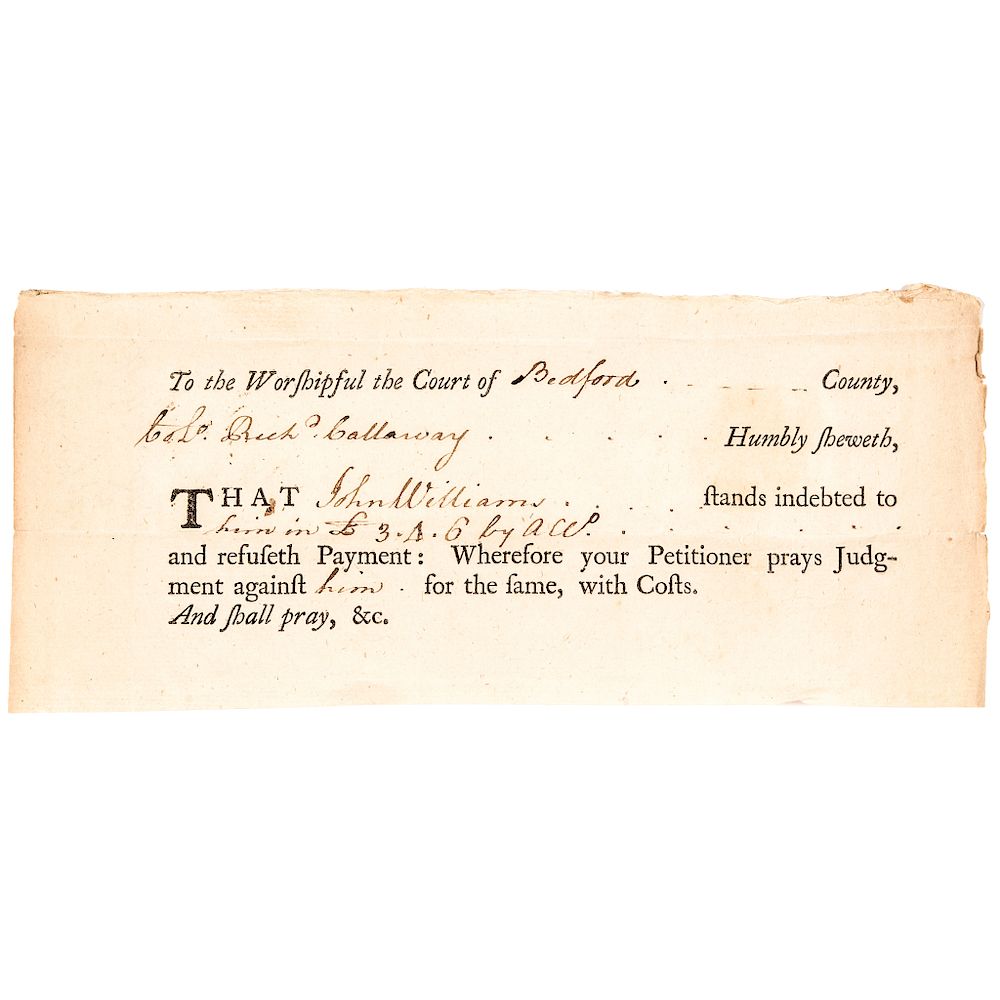 To the Worſhipful the Court of Bedford . - - - - County,
Colo. Richd. Callaway . . . . . . Humbly ſheweth,
THAT John Williams . . . . . ſtands indebted to
him in £ 3.4.6 by Acct. . . . . . .
and refuſeth Payment: Wherefore your Petitioner prays Judg-
ment againſt him . for the ſame, with Coſts.
And ſhall pray, &c.